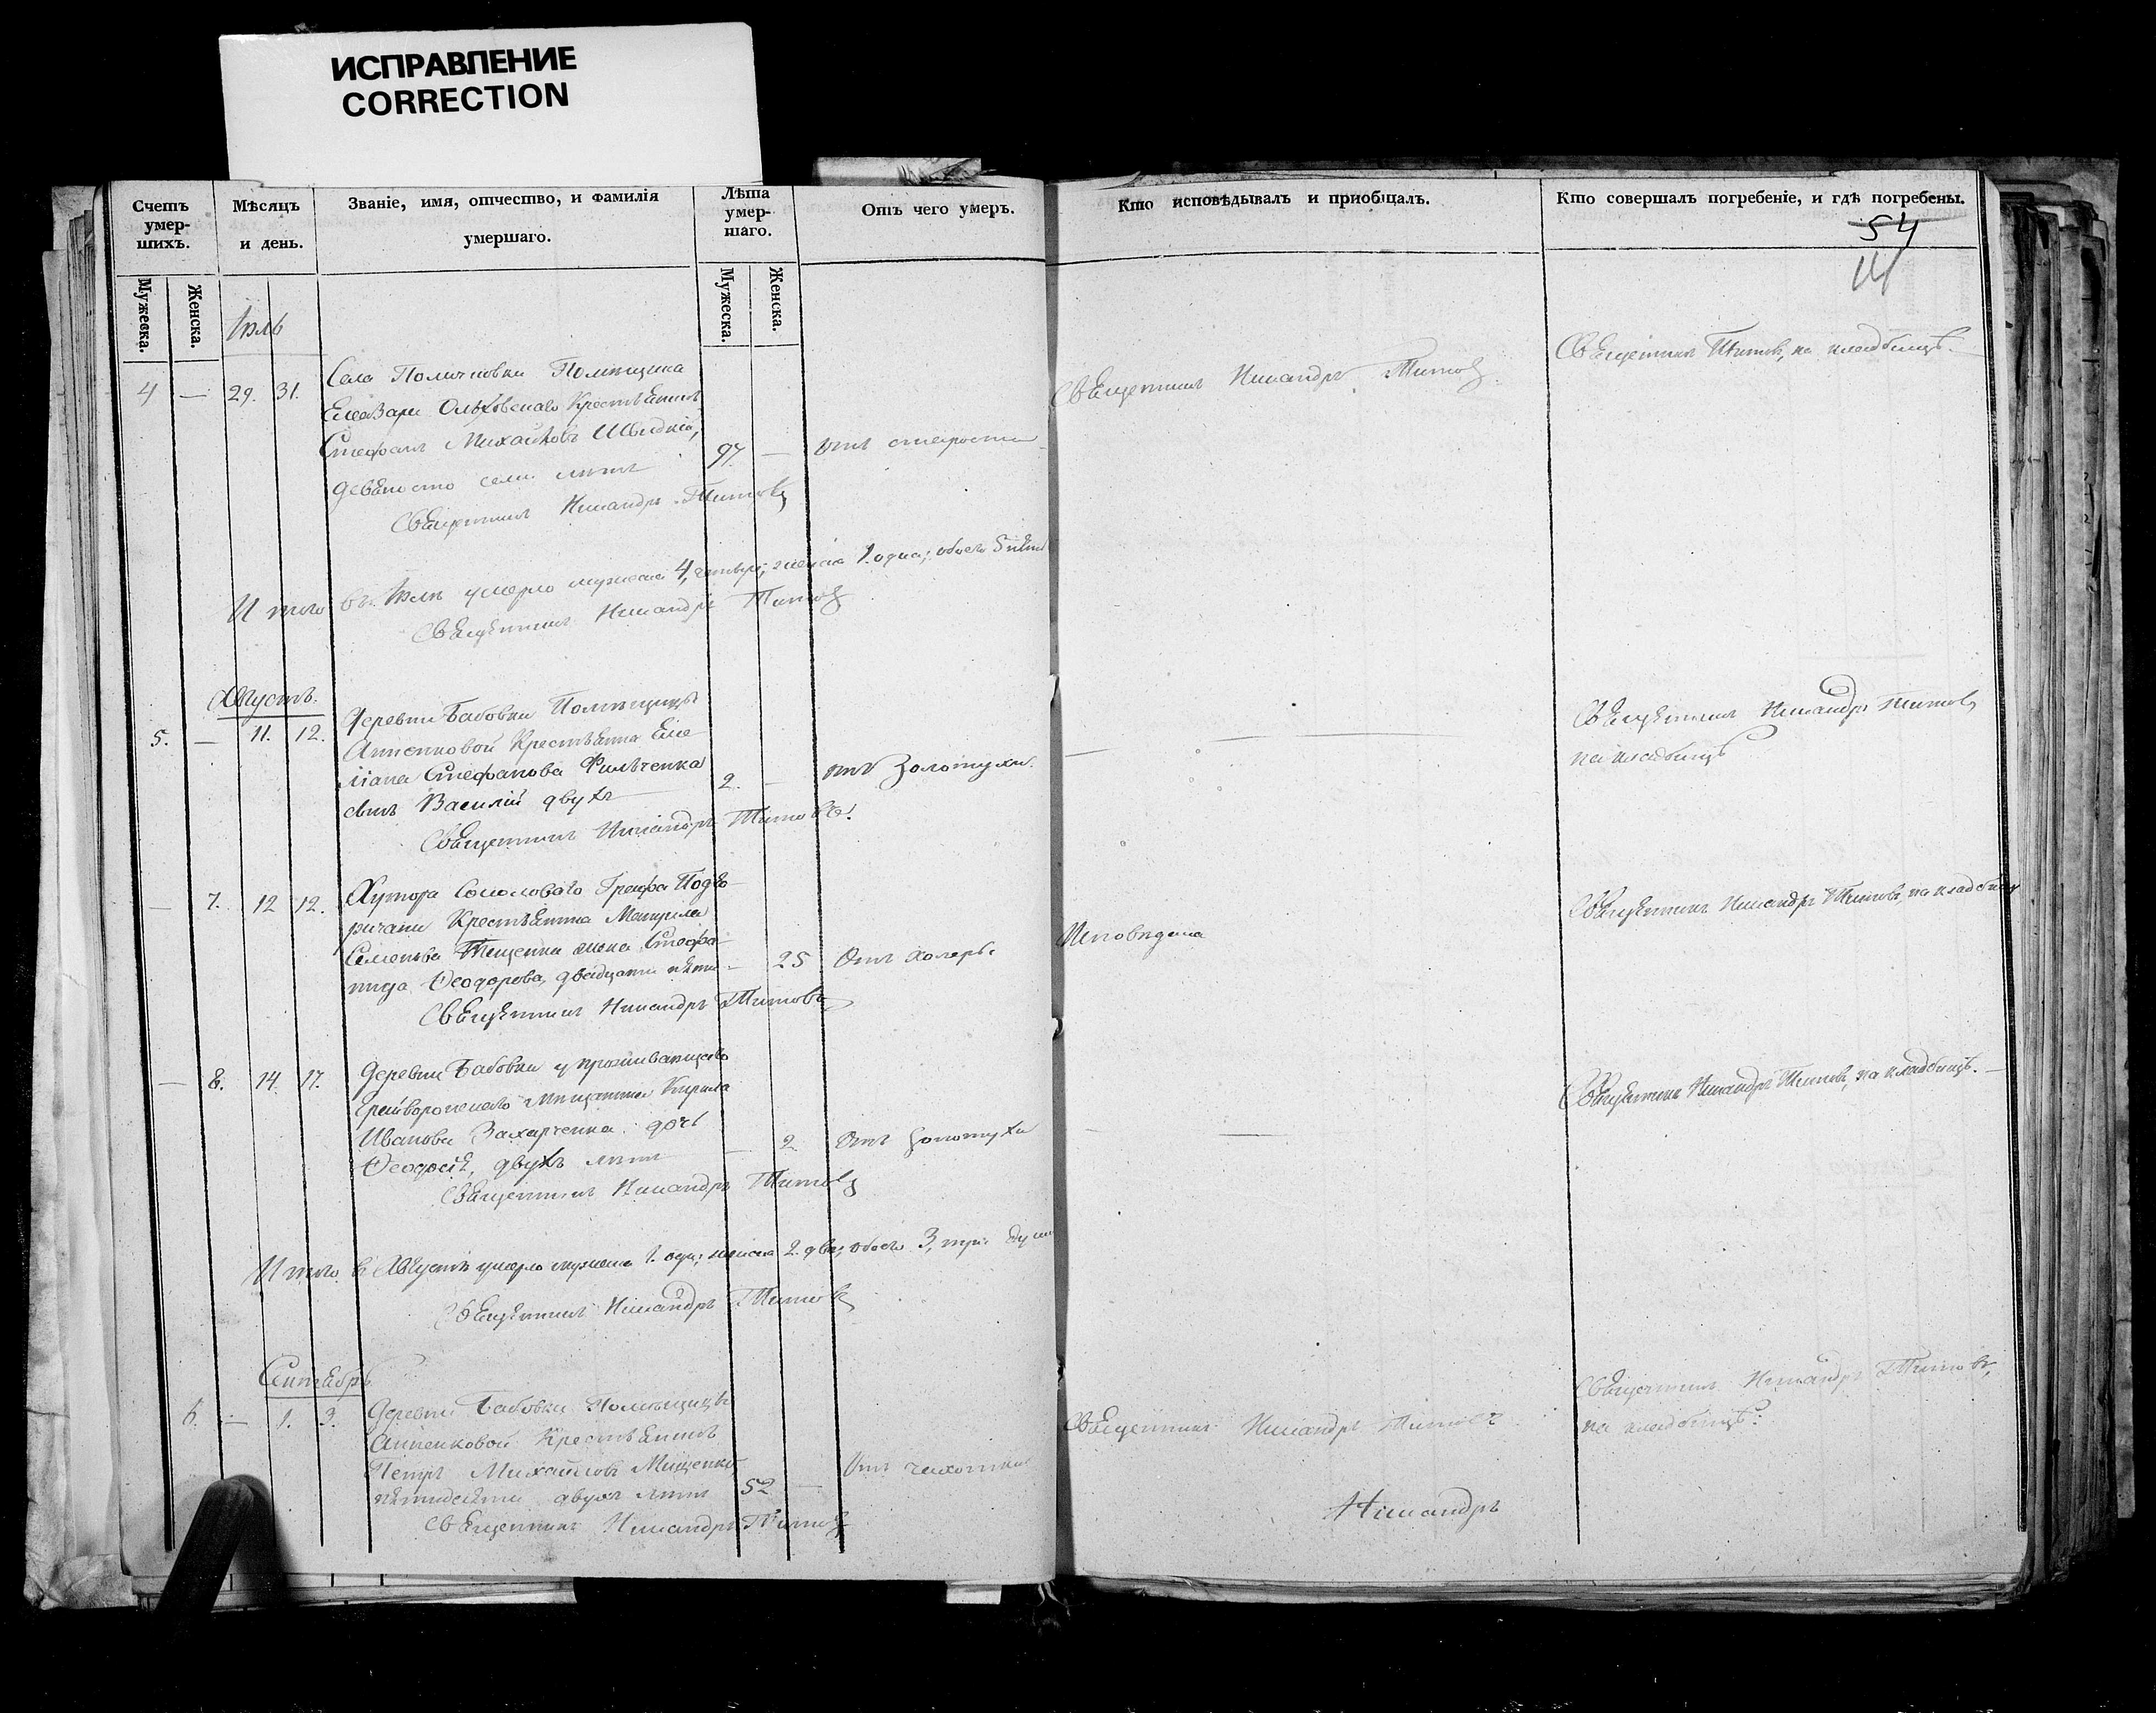 ИСПРАВЛЕНИЕ
CORRECTION
Счетъ умер-шихъ.
Мѣсяцъ и день.
Званіе, имя, отчество, и фамилія умершаго.
Лѣта умер-шаго.
Отъ чего умеръ.
Кто исповѣдывалъ и пріобщалъ.
Кто совершалъ погребеніе, и гдѣ погребены.
54
Мужеска.
Женска.
Мужеска.
Женска.
Іюль
4 — 29. 31.
Села Помѣщика
Крестьянинъ
Стефанъ Михайловъ Швидкій,
девяносто семи лѣтъ 97. — отъ старости
Священникъ Никандръ Титовъ
Священникъ Никандръ Титовъ.
Священникъ Титовъ, на кладбищѣ.
И того въ Іюлѣ умерло мужеска 4, четыре; женска 1. одна; обоего 5 пять
Священникъ Никандръ Титовъ
Августъ.
5. — 11. 12.
Деревни Бабовки Помѣщицы
Анненковой Крестьянина Еме
ліана Стефанова Фильченка
сынъ Василій двухъ 2. — отъ Золотухи.
Священникъ Никандръ Титовъ.
—
Священникъ Никандръ Титовъ
на кладбищѣ
— 7. 12 12.
Хутора Соколоваго Графа Подго-
ричани Крестьянина
Семенова Тищенка жена Стефа-
нида Ѳеодорова, двадцати пяти — 25 Отъ холеры
Священникъ Никандръ Титовъ
Исповѣдана
Священникъ Никандръ Титовъ, на кладбищѣ
— 8. 14. 17.
Деревни Бабовки у проживающаго
Грайворонскаго Мѣщанина Кирила
Иванова Захарченка дочь
Ѳеодосія, двухъ лѣтъ — 2 Отъ золотухи
Священникъ Никандръ Титовъ
Священникъ Никандръ Титовъ, на кладбищѣ. —
И того въ Августѣ умерло мужеска 1. одинъ; женска 2. двѣ, обоего 3, три души
Священникъ Никандръ Титовъ
Сентябрь
6. — 1. 3.
Деревни Бабовки Помѣщицы
Анненковой Крестьянинъ
Петръ Михайловъ Мищенко,
пятидесяти двухъ лѣтъ 52 — Отъ чахотки
Священникъ Никандръ Титовъ
Священникъ Никандръ Титовъ
Священникъ Никандръ Титовъ,
на кладбищѣ.
Никандръ